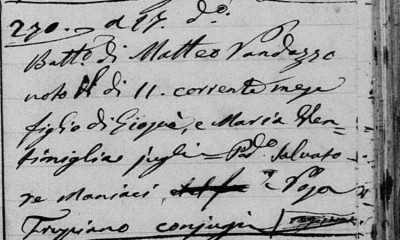 230. a 17. do.
Batto di Matteo Randazzo
nato il di 11. corrente mese
figlio di Giosuè, e Maria Ven=
timiglia jugli = Pdo Salvato=
re Maniaci, e Rosa
Trupiano conjugi